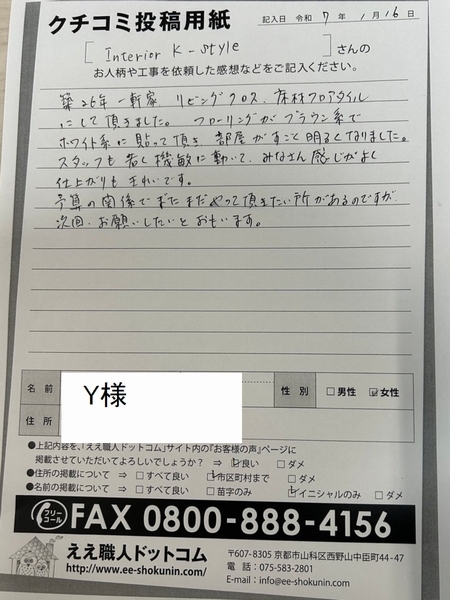 クチコミ投稿用紙
記入日 令和 7 年 1 月 16 日
[ Interior K-style ] さんの
お人柄や工事を依頼した感想などをご記入ください。
築26年 一軒家 リビングクロス、床材フロアタイル
にして頂きました。 フローリングがブラウン系で
ホワイト系に貼って頂き、部屋がすごく明るくなりました。
スタッフも若く機敏に動いて、みなさん感じがよく
仕上がりもきれいです。
予算の関係でまだまだやって頂きたい所があるのですが
次回、お願いしたいとおもいます。
名前 Y様 性別 □男性 ☑女性
住所
●上記内容を、「ええ職人ドットコム」サイト内の『お客様の声』ページに
掲載させていただいてよろしいでしょうか? ⇒ ☑良い □ダメ
●住所の掲載について ⇒ □すべて良い ☑市区町村まで □ダメ
●名前の掲載について ⇒ □すべて良い □苗字のみ ☑イニシャルのみ □ダメ
フリーコール FAX 0800-888-4156
ええ職人ドットコム
http://www.ee-shokunin.com/
〒607-8305 京都市山科区西野山中臣町44-47
電話:075-583-2801
E-mail:info@ee-shokunin.com